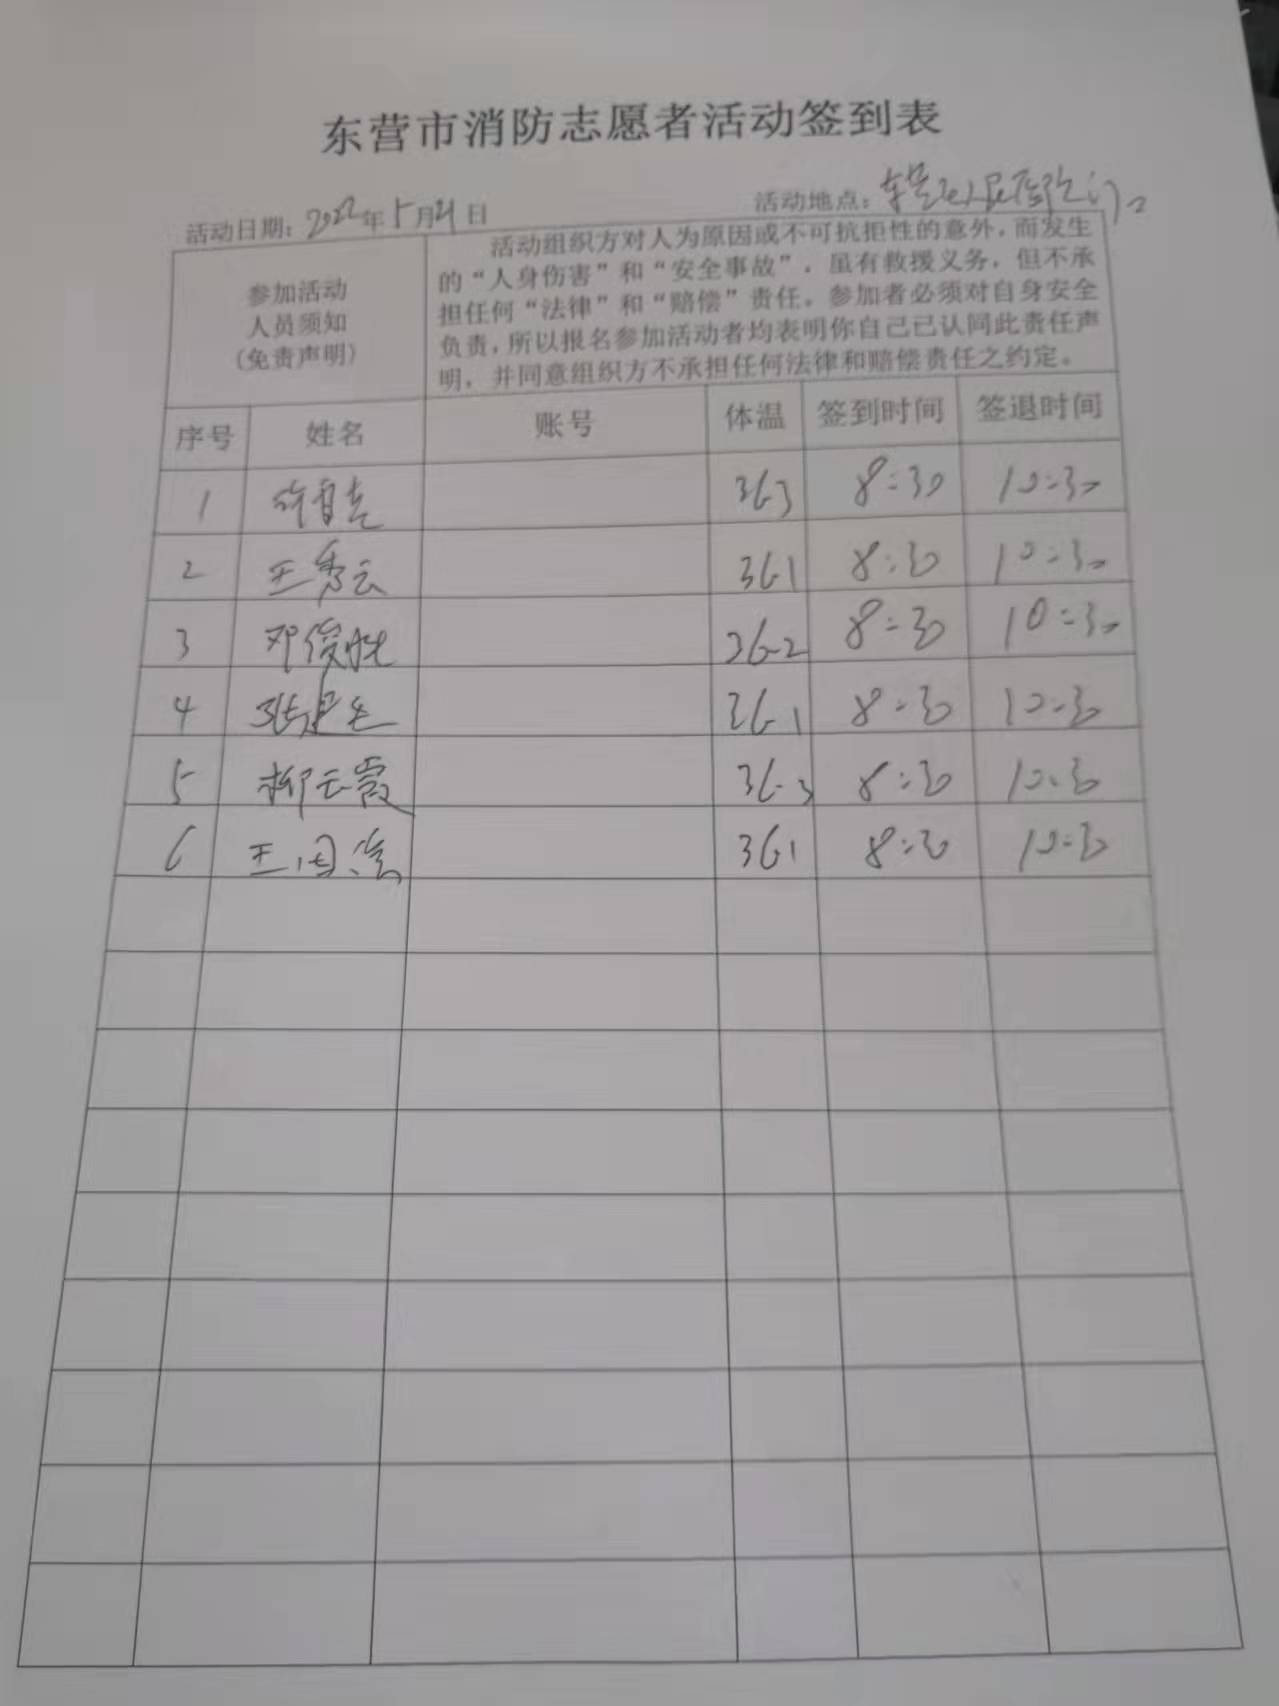 东营市消防志愿者活动签到表
活动日期：2022年5月21日 活动地点：东营区人民医院门口
参加活动
人员须知
(免责声明)
活动组织方对人为原因或不可抗拒性的意外，而发生
的“人身伤害”和“安全事故”，虽有救援义务，但不承
担任何“法律”和“赔偿”责任。参加者必须对自身安全
负责，所以报名参加活动者均表明你自己已认同此责任声
明，并同意组织方不承担任何法律和赔偿责任之约定。
序号 姓名 账号 体温 签到时间 签退时间
1 36.3 8:30 10:30
2 王秀云 36.1 8:30 10:30
3 邓俊胜 36.2 8:30 10:30
4 36.1 8:30 10:30
5 柳云霞 36.3 8:30 10:30
6 王国 36.1 8:30 10:30